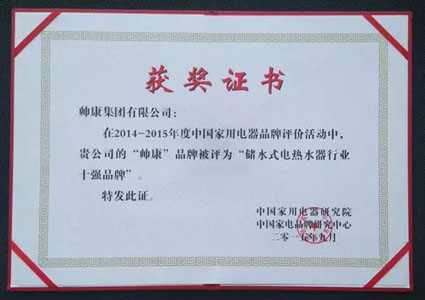 获奖证书
帅康集团有限公司：
在2014-2015年度中国家用电器品牌评价活动中，
贵公司的“帅康”品牌被评为“储水式电热水器行业
十强品牌”。
特发此证。
中国家用电器研究院
中国家电品牌研究中心
二零一五年九月